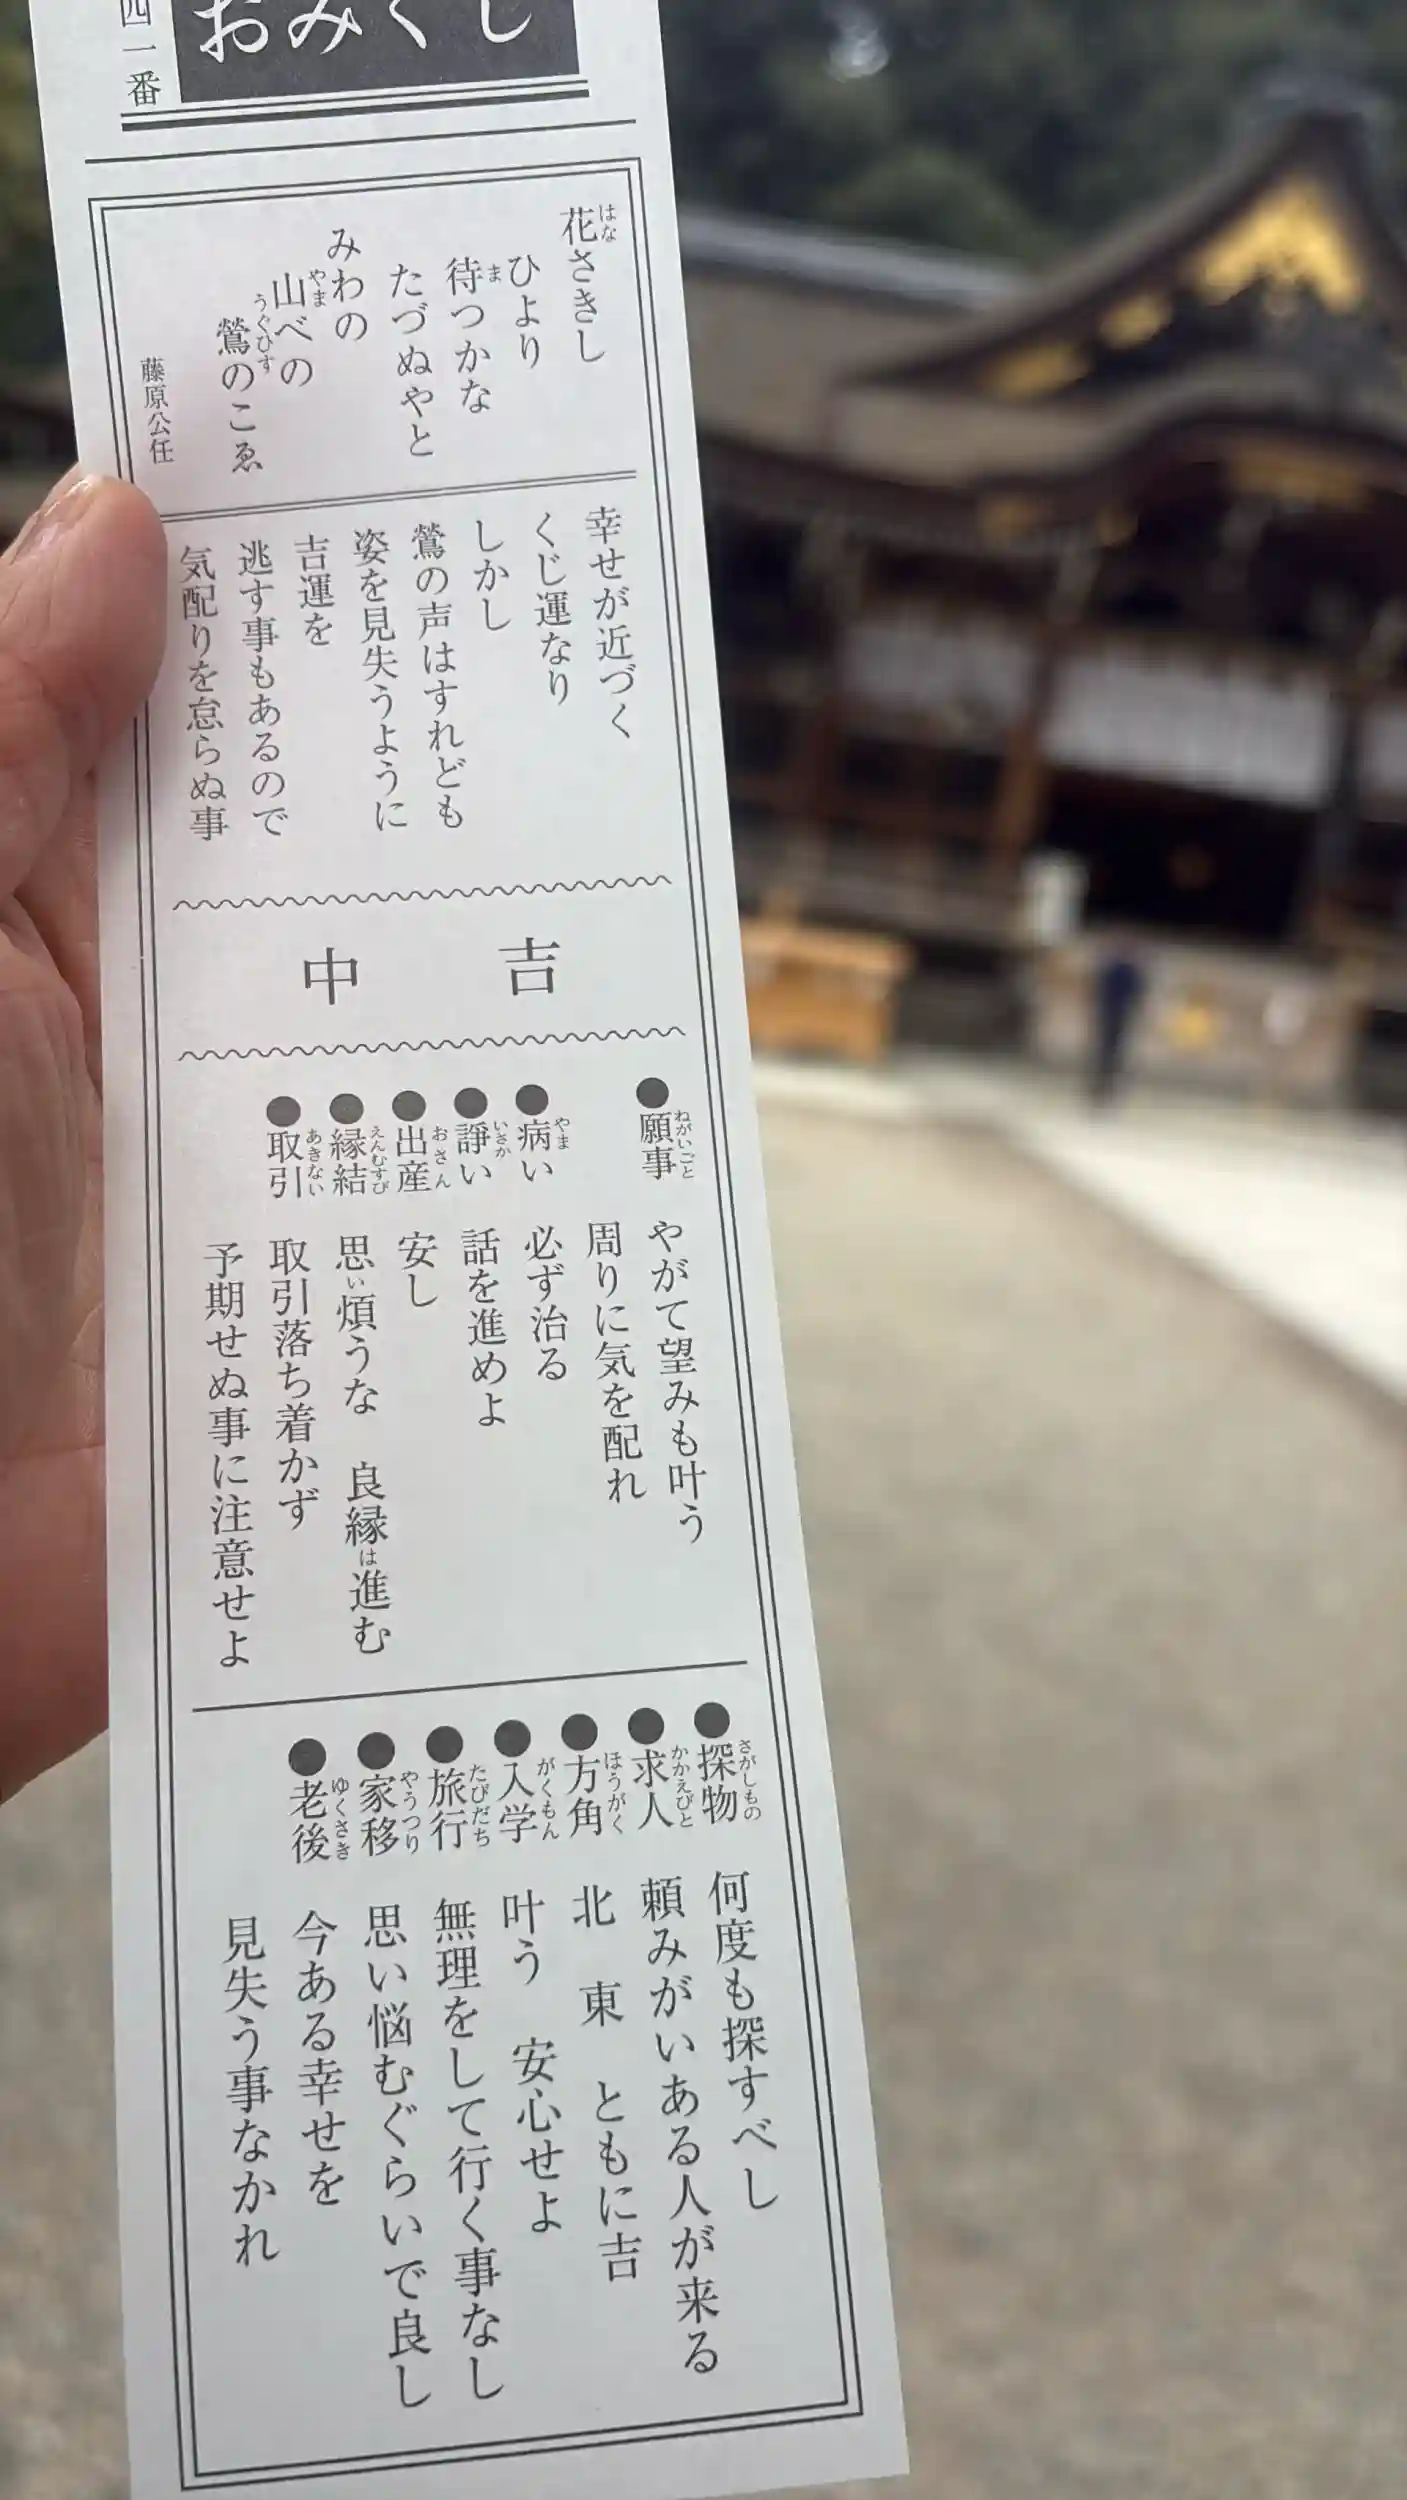 おみくじ
四一番
花さきし
ひより
待つかな
たづぬやと
みわの
山べの
鶯のこゑ
藤原公任
幸せが近づく
くじ運なり
しかし
鶯の声はすれども
姿を見失うように
吉運を
逃す事もあるので
気配りを怠らぬ事
吉 中
●願事 やがて望みも叶う
周りに気を配れ
●病い 必ず治る
●諍い 話を進めよ
●出産 安し
●縁結 思い煩うな 良縁は進む
●取引 取引落ち着かず
予期せぬ事に注意せよ
●探物 何度も探すべし
●求人 頼みがいある人が来る
●方角 北 東 ともに吉
●入学 叶う 安心せよ
●旅行 無理をして行く事なし
●家移 思い悩むぐらいで良し
●老後 今ある幸せを
見失う事なかれ